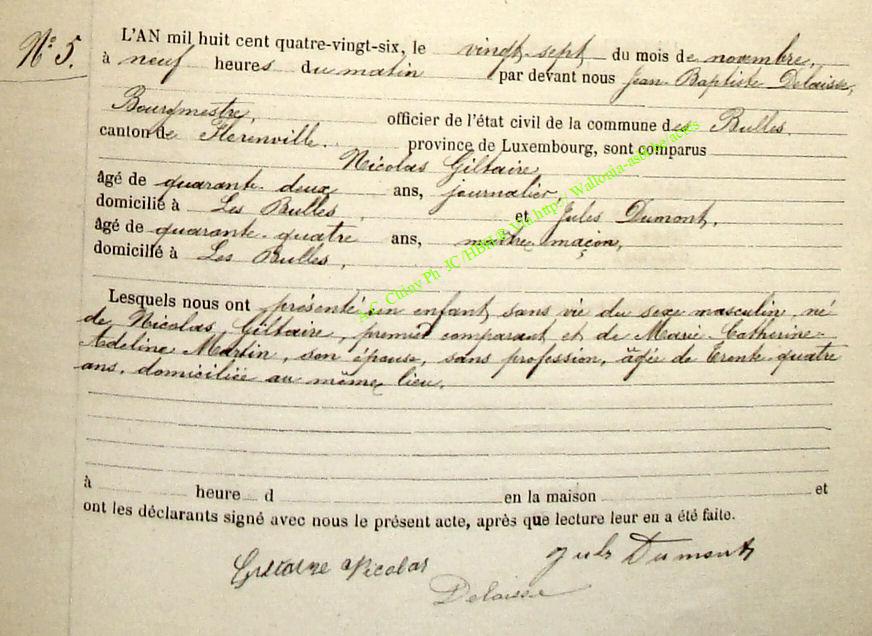 N° 5.
L'AN mil huit cent quatre-vingt-six, le vingt-sept du mois de novembre,
à neuf heures du matin par devant nous Jean-Baptiste Delaisse,
Bourgmestre, officier de l'état civil de la commune des Bulles,
canton de Florenville, province de Luxembourg, sont comparus
Nicolas Giltaire
âgé de quarante-deux ans, journalier,
domicilié à Les Bulles, et Jules Dumont,
âgé de quarante-quatre ans, maître maçon,
domicilié à Les Bulles,
Lesquels nous ont présenté un enfant sans vie du sexe masculin, né
de Nicolas Giltaire, premier comparant et de Marie-Catherine-
Adeline Martin, son épouse, sans profession, âgée de trente-quatre
ans, domiciliée au même lieu.
à heure d en la maison et
ont les déclarants signé avec nous le présent acte, après que lecture leur en a été faite.
Giltaire Nicolas Jules Dumont
Delaisse
A.C. Chiny Ph JC/HBH Wallonia-asbl